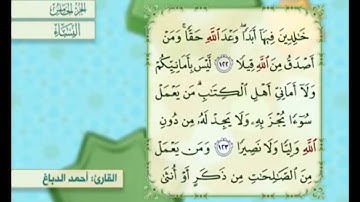 الجزء الخامس
النساء
خَٰلِدِينَ فِيهَآ أَبَدٗاۖ وَعۡدَ ٱللَّهِ حَقّٗاۚ وَمَنۡ
أَصۡدَقُ مِنَ ٱللَّهِ قِيلٗا ١٢٢ لَّيۡسَ بِأَمَانِيِّكُمۡ
وَلَآ أَمَانِيِّ أَهۡلِ ٱلۡكِتَٰبِۗ مَن يَعۡمَلۡ
سُوٓءٗا يُجۡزَ بِهِۦ وَلَا يَجِدۡ لَهُۥ مِن دُونِ
ٱللَّهِ وَلِيّٗا وَلَا نَصِيرٗا ١٢٣ وَمَن يَعۡمَلۡ
مِنَ ٱلصَّٰلِحَٰتِ مِن ذَكَرٍ أَوۡ أُنثَىٰ
القارئ: أحمد الدباغ